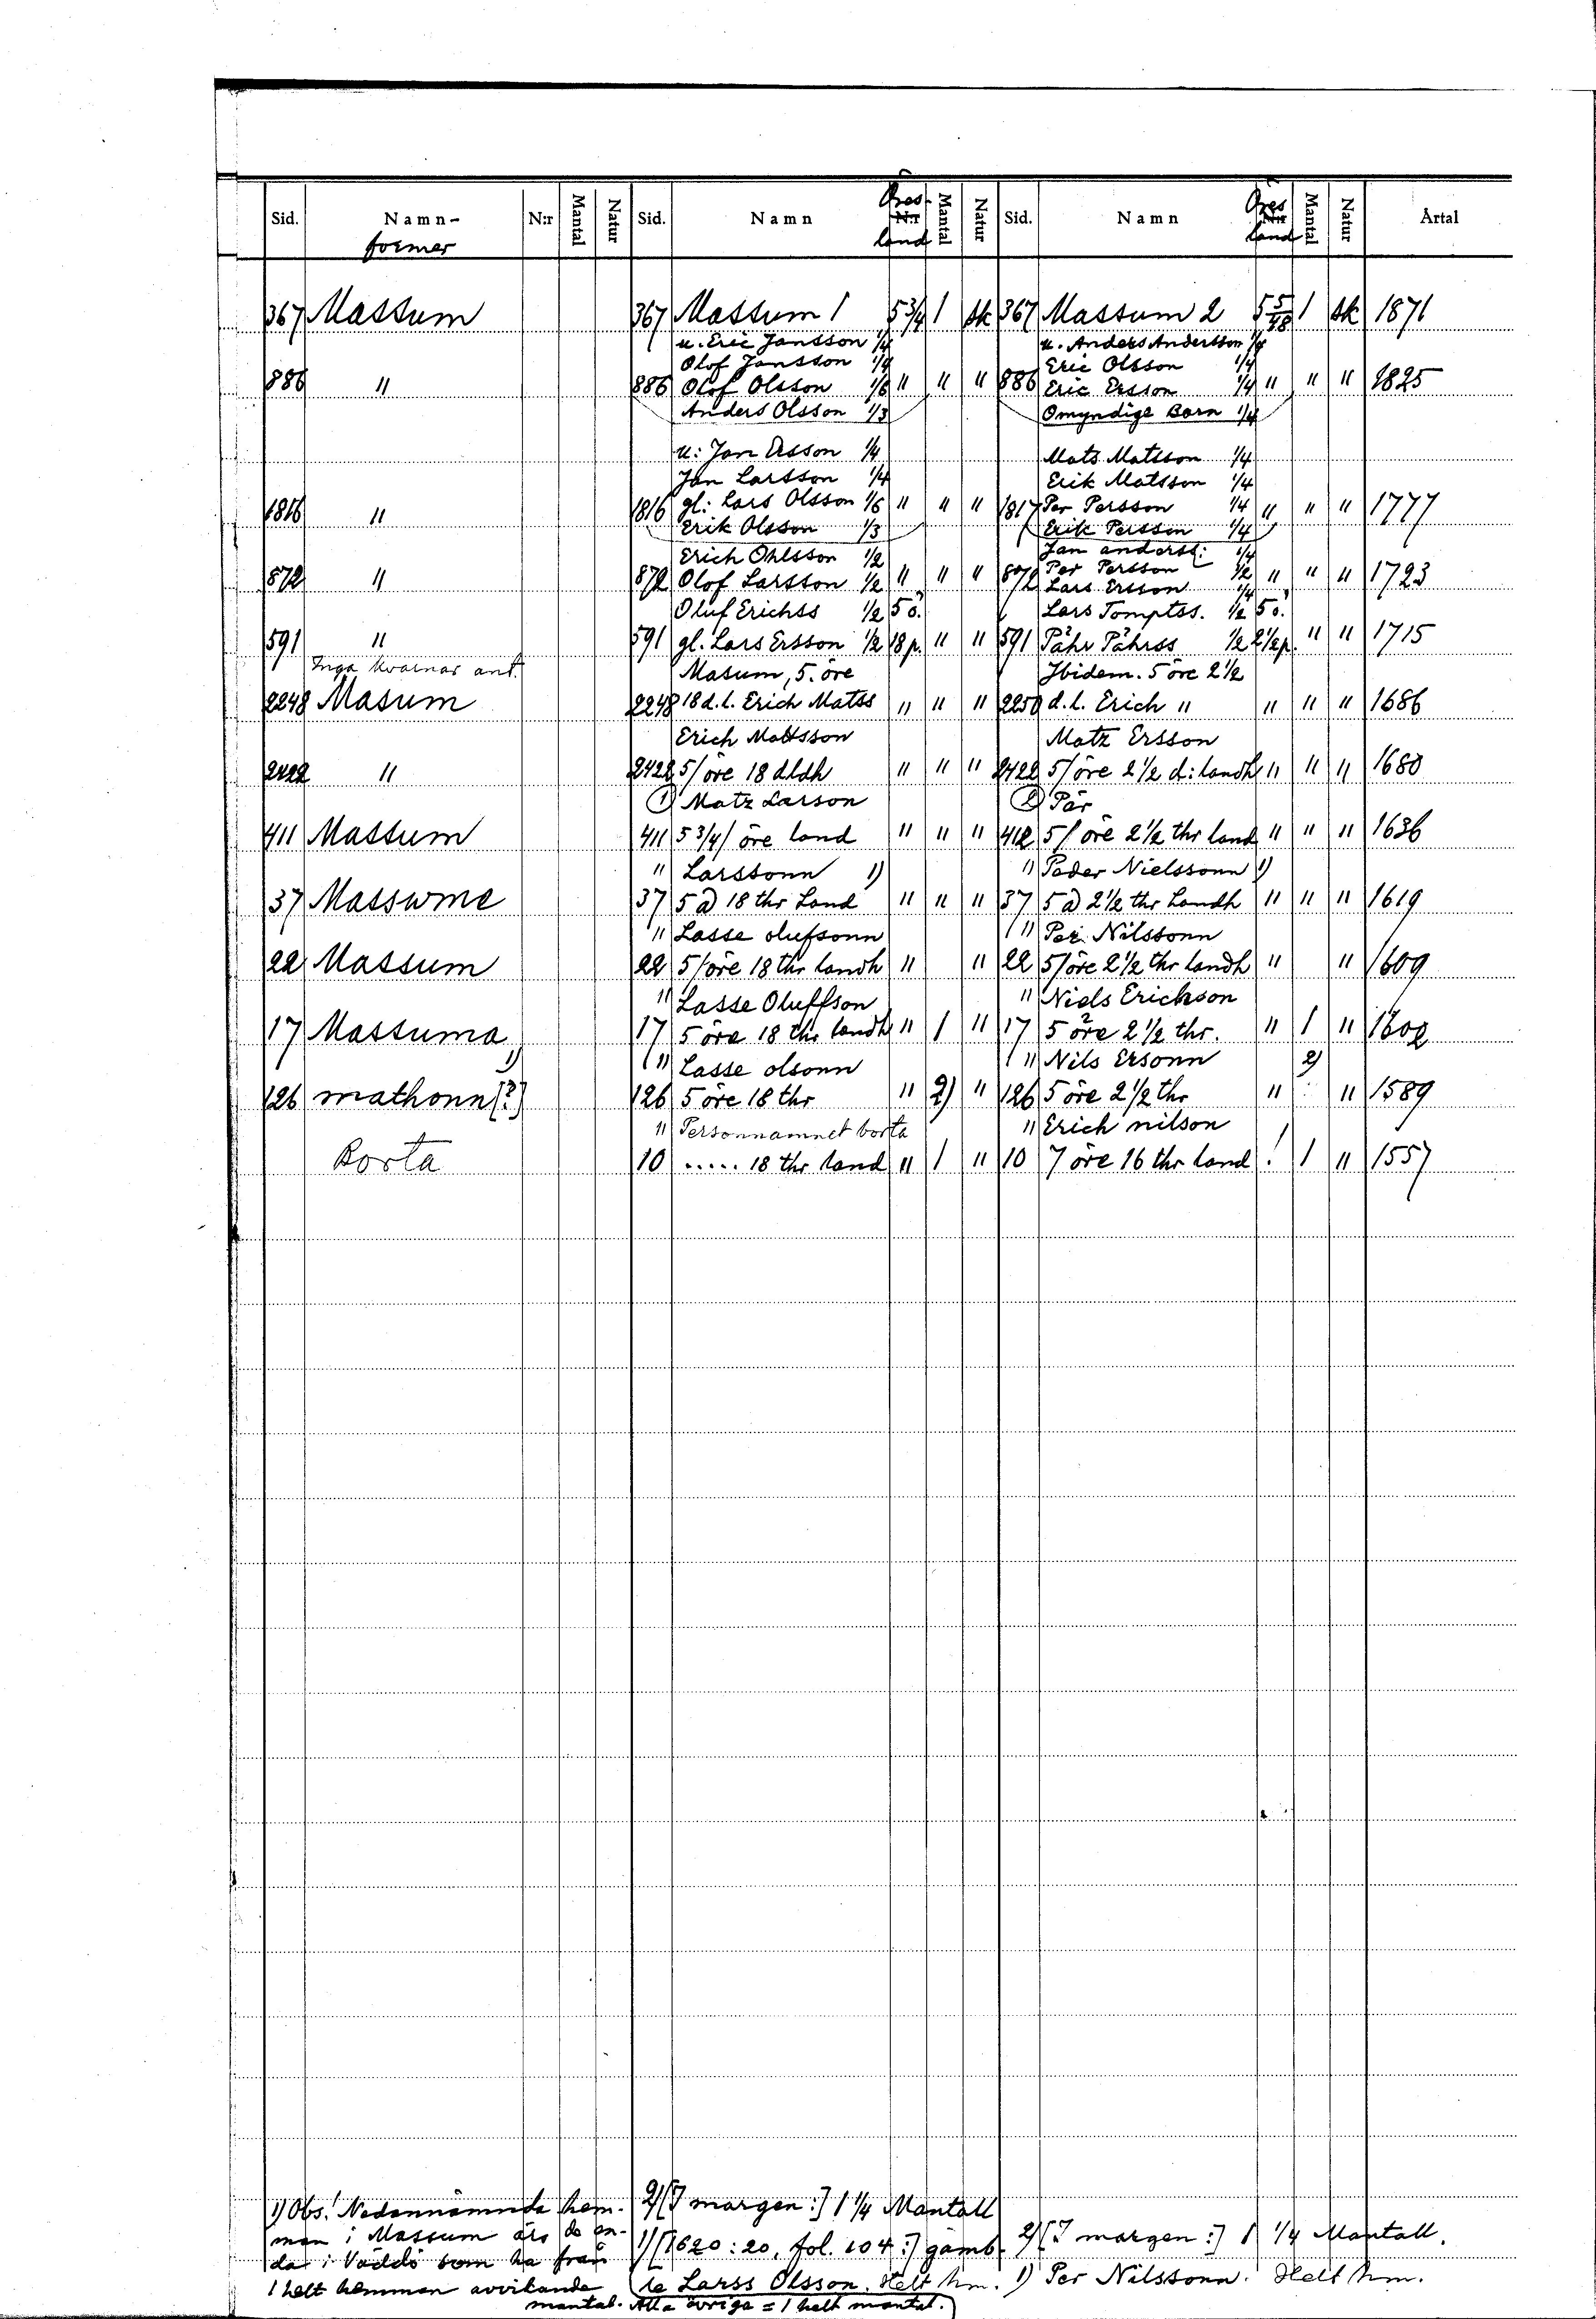 Sid. Namn- former N:r Mantal Natur Sid. Namn Öres- N:r land Mantal Natur Sid. Namn Öres N:r land Mantal Natur Årtal
367 Massum 367 Massum 1 5 3/4 1 sk 367 Massum 2 5 5/48 1 sk 1871
u. Eric Jansson 1/4 u. Anders Andersson 1/4
Olof Jansson 1/4 Eric Olsson 1/4
886 " 886 Olof Olsson 1/6 " " " 886 Eric Ersson 1/4 " " " 1825
Anders Olsson 1/3 Omyndige Barn 1/4
u: Jan Ersson 1/4 Mats Matsson 1/4
Jan Larsson 1/4 Erik Matsson 1/4
1816 " 1816 gl: Lars Olsson 1/6 " " " 1817 Per Persson 1/4 " " " 1777
Erik Olsson 1/3 Erik Persson 1/4
Erich Ohlsson 1/2 Jan anderss: 1/4
872 " 872 Olof Larsson 1/2 " " " 872 Per Persson 1/2 " " " 1723
Lars Ersson 1/4
Oluf Erichss 1/2 5 ö. Lars Tomptss. 1/2 5 ö.
591 " 591 gl. Lars Ersson 1/2 18 p. " " 591 Påhr Påhrss 1/2 2 1/2 p. " " 1715
Inga kvarnar ant. Masum, 5. öre Ibidem. 5 öre 2 1/2
2248 Masum 2248 18 d. l. Erich Matss " " " 2250 d. l. Erich " " " " 1686
Erich Mattsson Matz Ersson
2422 " 2422 5/ öre 18 dldh " " " 2422 5/ öre 2 1/2 d: landh " " " 1680
1) Matz Larson 2) Pär
411 Massum 411 5 3/4/ öre land " " " 412 5/ öre 2 1/2 thr land " " " 1636
" Larssonn 1) " Påder Nielssonn 1)
37 Masswme 37 5 ø 18 thr Land " " " 37 5 ø 2 1/2 thr Landh " " " 1619
" Lasse olufsonn " Per Nilssonn
22 Massum 22 5/ öre 18 thr landh " " 22 5/ öre 2 1/2 thr landh " " 1609
" Lasse Oluffson " Niels Erickson
17 Massuma 17 5 öre 18 thr landh " 1 " 17 5 öre 2 1/2 thr. " 1 " 1602
1) " Lasse olsonn " Nils Ersonn 2)
126 mathonn [?] 126 5 öre 18 thr " 2) " 126 5 öre 2 1/2 thr " " 1589
" Personnamnet borta " Erich nilson
Borta 10 ..... 18 thr land " 1 " 10 7 öre 16 thr land ! 1 " 1557
1) Obs! Nedannämnda hem-
man i Massum äro de en-
da i Väddö som ha från
1 helt hemman avvikande
mantal. Alla övriga = 1 helt mantal.
2) [I margen:] 1 1/4 Mantall
1) [1620: 20, fol. 104:] gamb-
le Larss Olsson. Helt hm.
2) [I margen:] 1 1/4 Mantall.
1) Per Nilssonn. Helt hm.